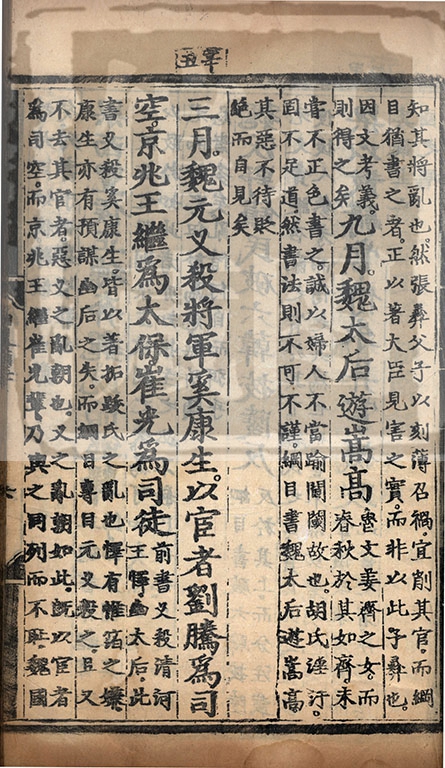 知其將亂也。然張彝父子以刻薄召禍。宜削其官。而綱
目猶書之者。正以著大臣見害之實。而非以此予彝也。
因文考義。
則得之矣
九月。魏太后遊嵩高
魯文姜齊之女。而
春秋於其如齊未
嘗不正色書之。誠以婦人不當踰閫閾故也。胡氏淫汙。
固不足道。然書法則不可不謹。綱目書魏太后遊嵩高。
其惡不待貶
絕而自見矣
三月。魏元乂殺將軍奚康生。以宦者劉騰爲司
空。京兆王繼爲太保。崔光爲司徒
前書乂殺清河
王懌幽太后。此
書又殺奚康生。皆以著拓跋氏之亂也。懌有帷箔之嫌。
康生亦有預謀幽后之失。而綱目專目元乂殺之。且又
不去其官者。惡乂之亂朝也。乂之亂朝如此。旣以宦者
爲司空。而京兆王繼崔光輩。乃與之同列而不恥。魏國